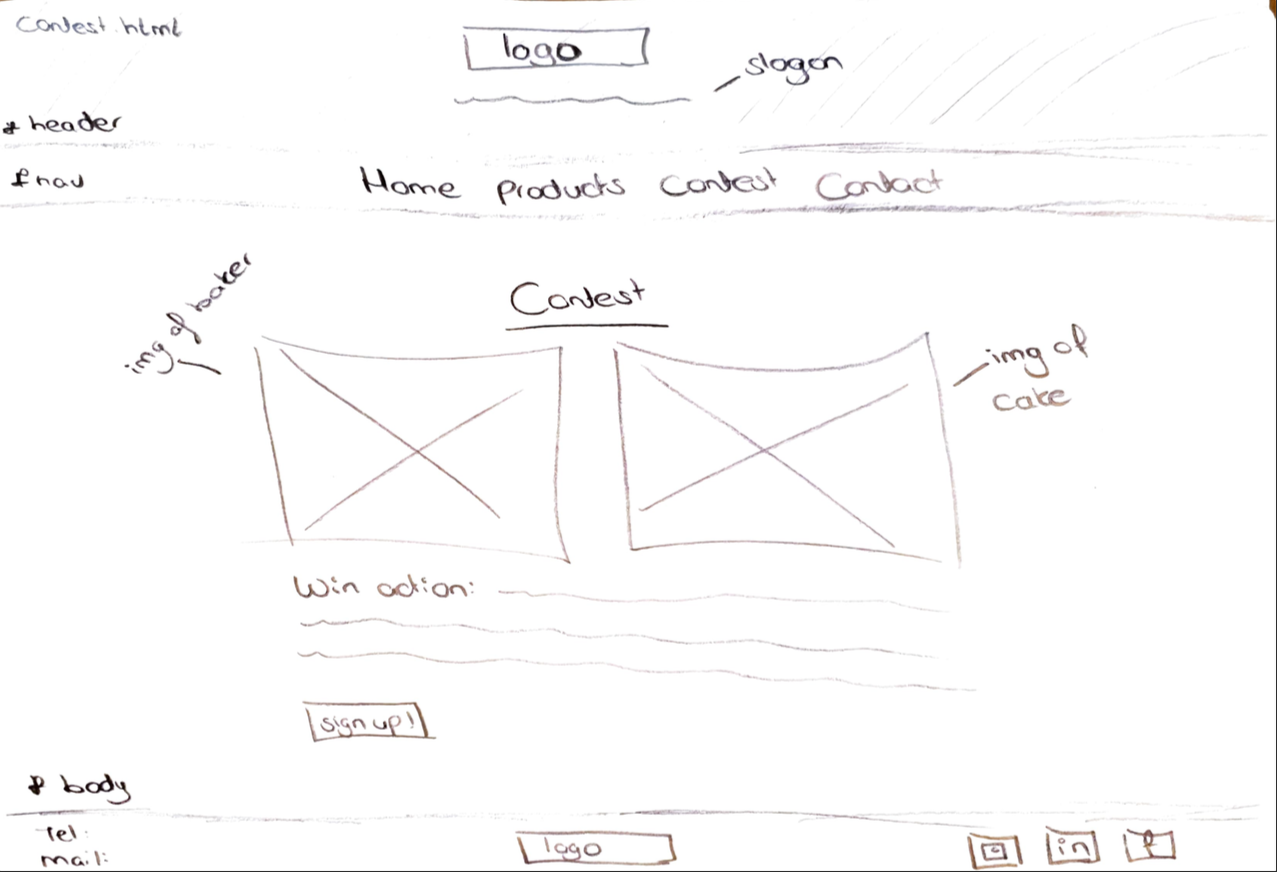 Contest.html
logo
slogan
header
nav
Home Products Contest Contact
img of baker
Contest
img of
cake
Win action:
sign up!
body
Tel:
mail:
logo
in
f